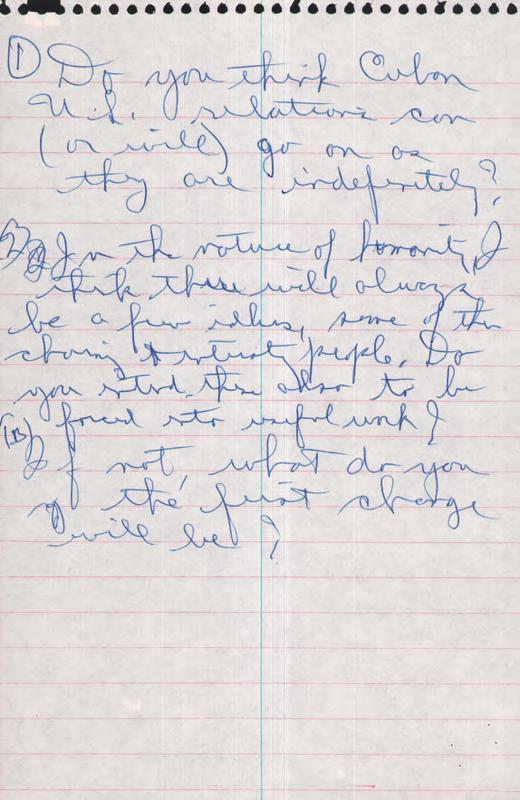 ① Do you think Cuban
U.S. relations can
(or will) go on as
they are indefinitely?
2) In the nature of humanity, I
think there will always
be a few idlers, some of them
charming & interesting people. Do
you intend these also to be
forced into useful work?
(B) If not, what do you
the first change
will be?